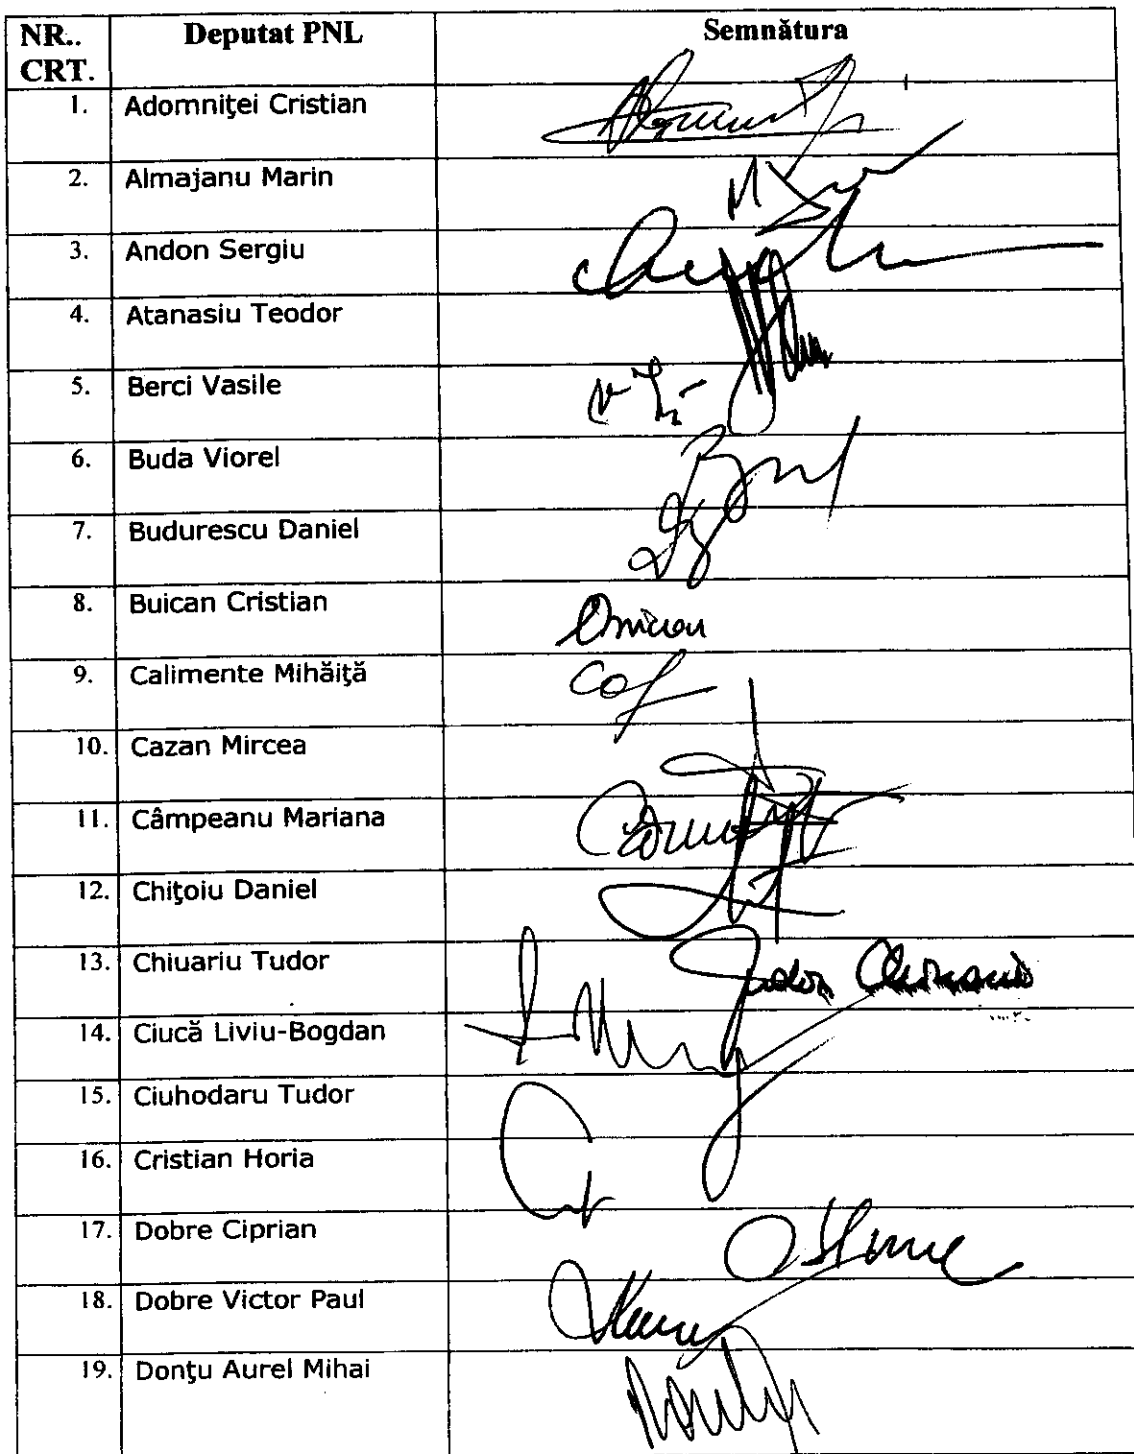 NR.. Deputat PNL Semnătura
CRT.
1. Adomniţei Cristian
2. Almajanu Marin
3. Andon Sergiu
4. Atanasiu Teodor
5. Berci Vasile
6. Buda Viorel
7. Budurescu Daniel
8. Buican Cristian
9. Calimente Mihăiţă
10. Cazan Mircea
11. Câmpeanu Mariana
12. Chiţoiu Daniel
13. Chiuariu Tudor Tudor Chiuariu
14. Ciucă Liviu-Bogdan
15. Ciuhodaru Tudor
16. Cristian Horia
17. Dobre Ciprian
18. Dobre Victor Paul
19. Donţu Aurel Mihai